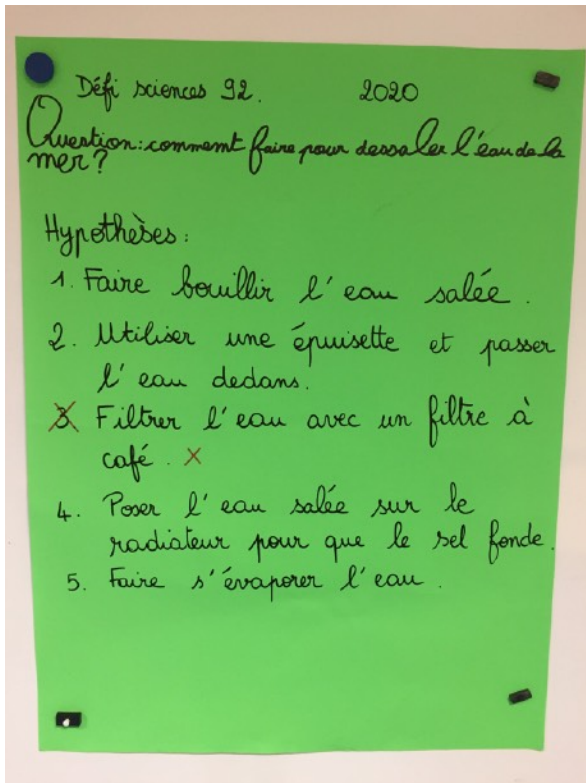 Défi sciences 92. 2020
Question: comment faire pour dessaler l'eau de la
mer?
Hypothèses:
1. Faire bouillir l'eau salée.
2. Utiliser une épuisette et passer
l'eau dedans.
3 Filtrer l'eau avec un filtre à
café. x
4. Poser l'eau salée sur le
radiateur pour que le sel fonde.
5. Faire s'évaporer l'eau.